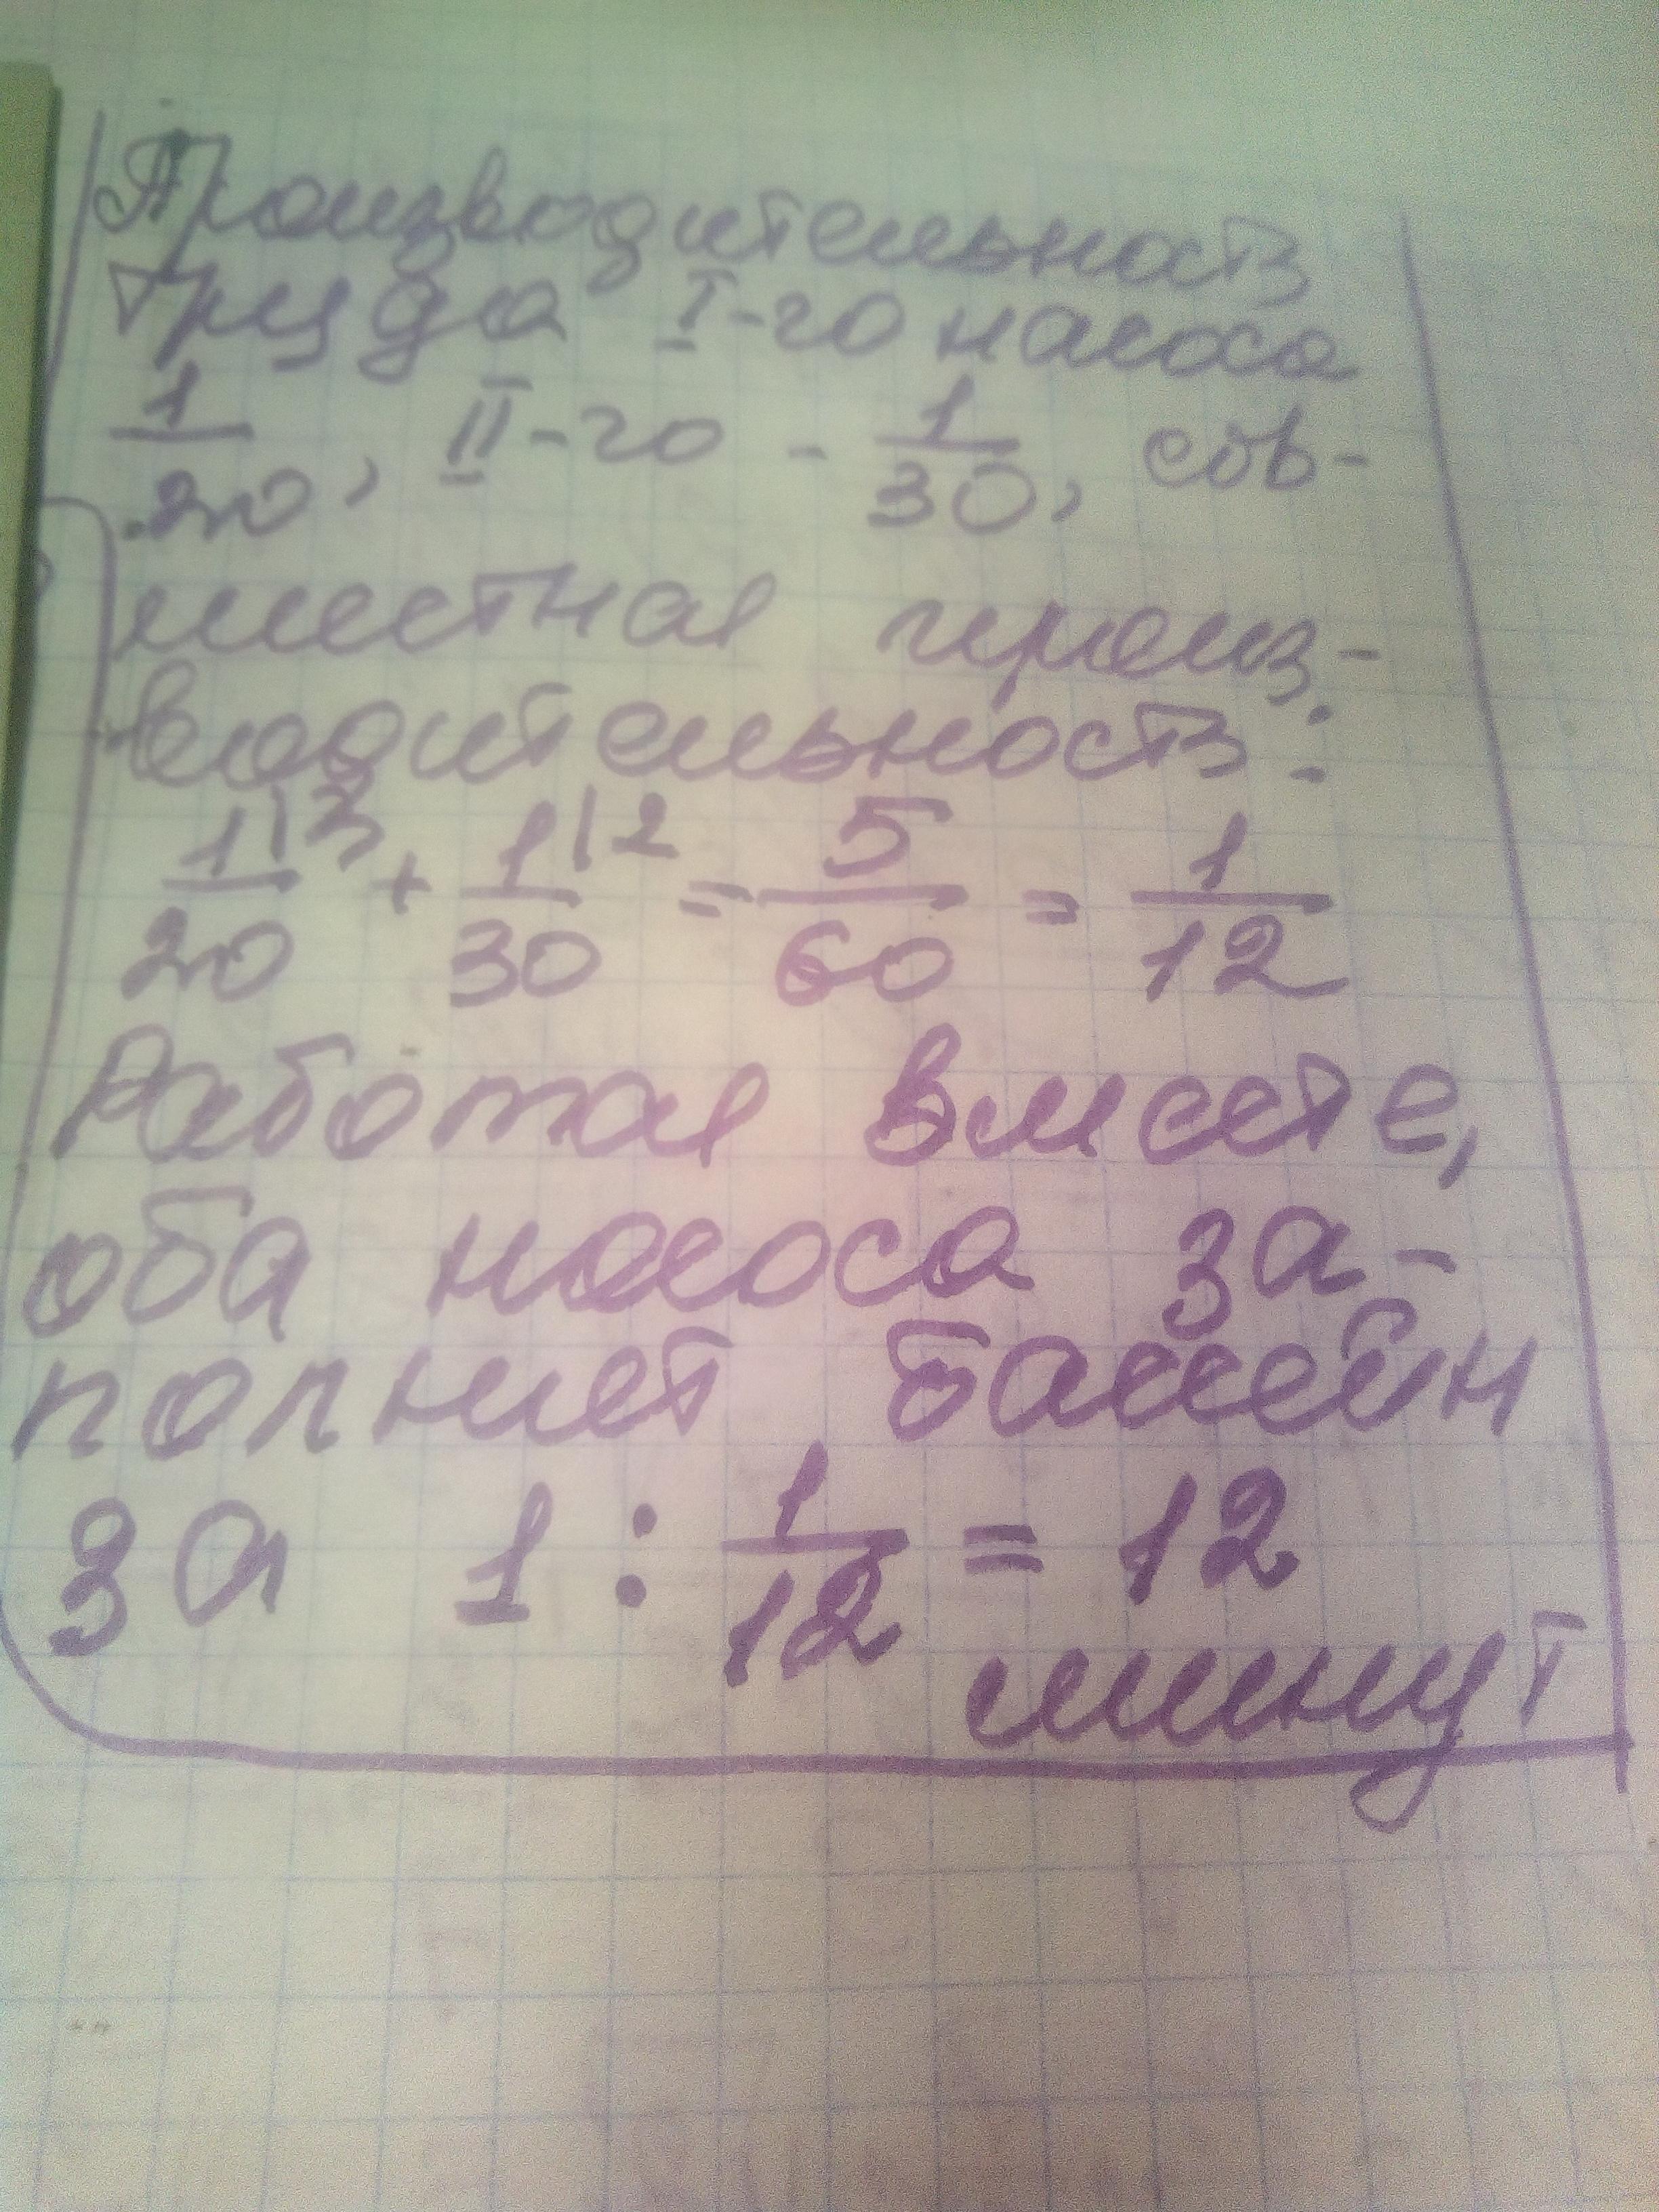 Производительность
труда I-го насоса
1/20, II-го - 1/30, сов-
местная произ-
водительность:
1|3/20 + 1|2/30 = 5/60 = 1/12
Работая вместе,
оба насоса за-
полнят бассейн
за 1 : 1/12 = 12
минут